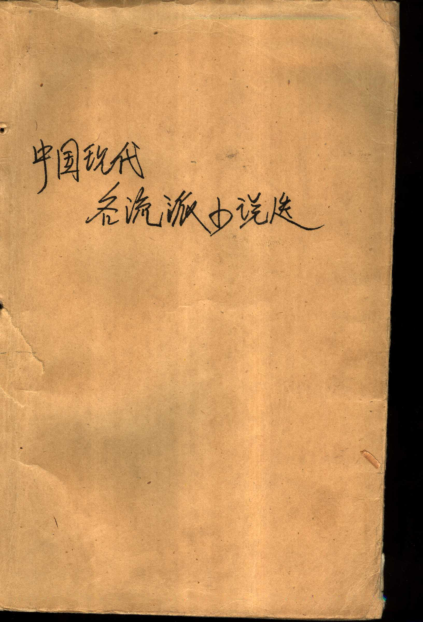 中国现代
各流派小说选